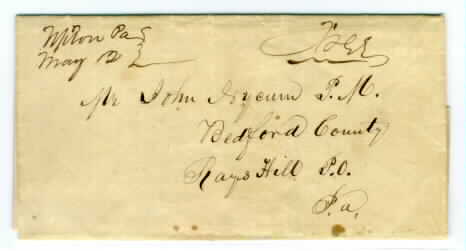 Upton Pa
May 12
Free
Mr John Nycum P.M.
Bedford County
Rays Hill P.O.
Pa.